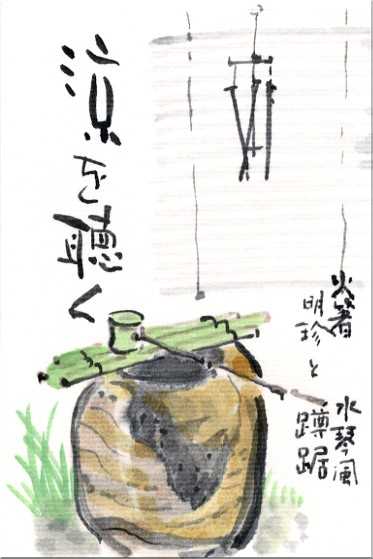 涼を聴く
火箸
明珍と
水琴風
蹲踞